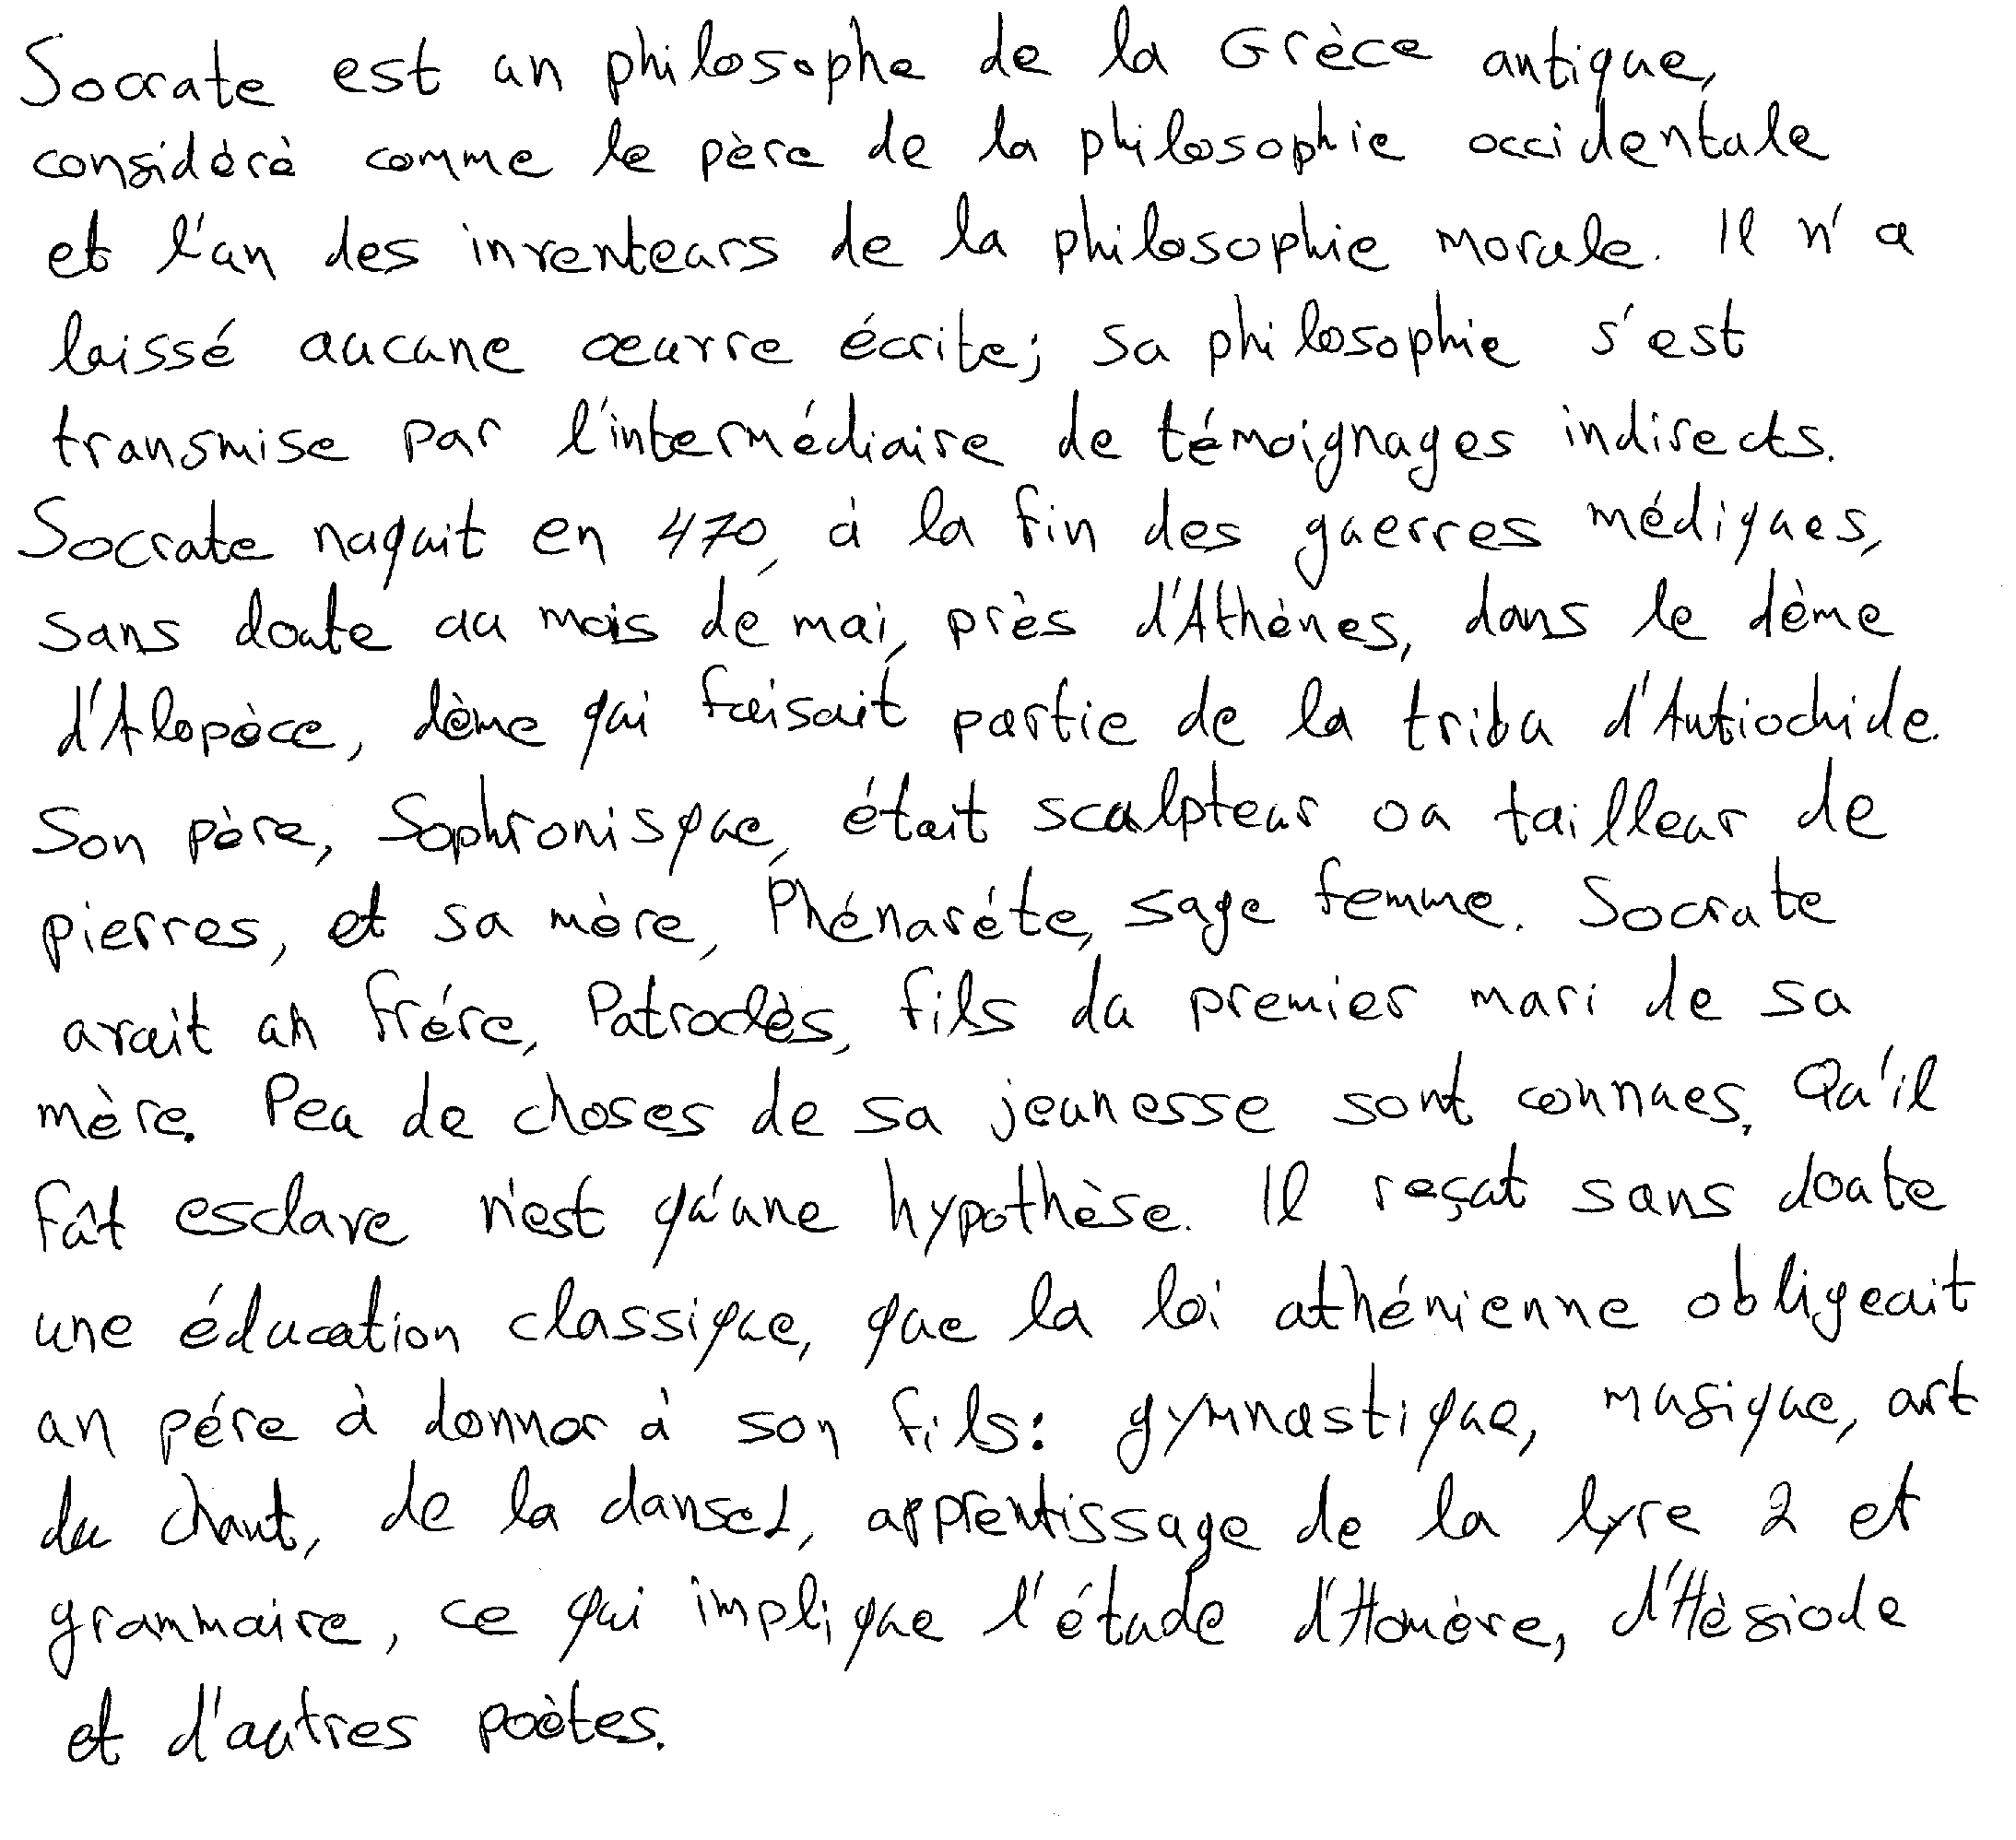 Socrate est un philosophe de la Grèce antique,
considéré comme le père de la philosophie occidentale
et l'un des inventeurs de la philosophie morale. Il n'a
laissé aucune œuvre écrite; sa philosophie s'est
transmise par l'intermédiaire de témoignages indirects.
Socrate naquit en 470, à la fin des guerres médiques,
sans doute au mois de mai, près d'Athènes, dans le dème
d'Alopèce, dème qui faisait partie de la tribu d'Antiochide.
Son père, Sophronisque, était sculpteur ou tailleur de
pierres, et sa mère, Phénaréte, sage femme. Socrate
avait un frére, Patroclès, fils du premier mari de sa
mère. Peu de choses de sa jeunesse sont connues. Qu'il
fût esclave n'est qu'une hypothèse. Il reçut sans doute
une éducation classique, que la loi athénienne obligeait
un pére à donner à son fils: gymnastique, musique, art
du chant, de la danse1, apprentissage de la lyre 2 et
grammaire, ce qui implique l'étude d'Homère, d'Hèsiode
et d'autres poètes.